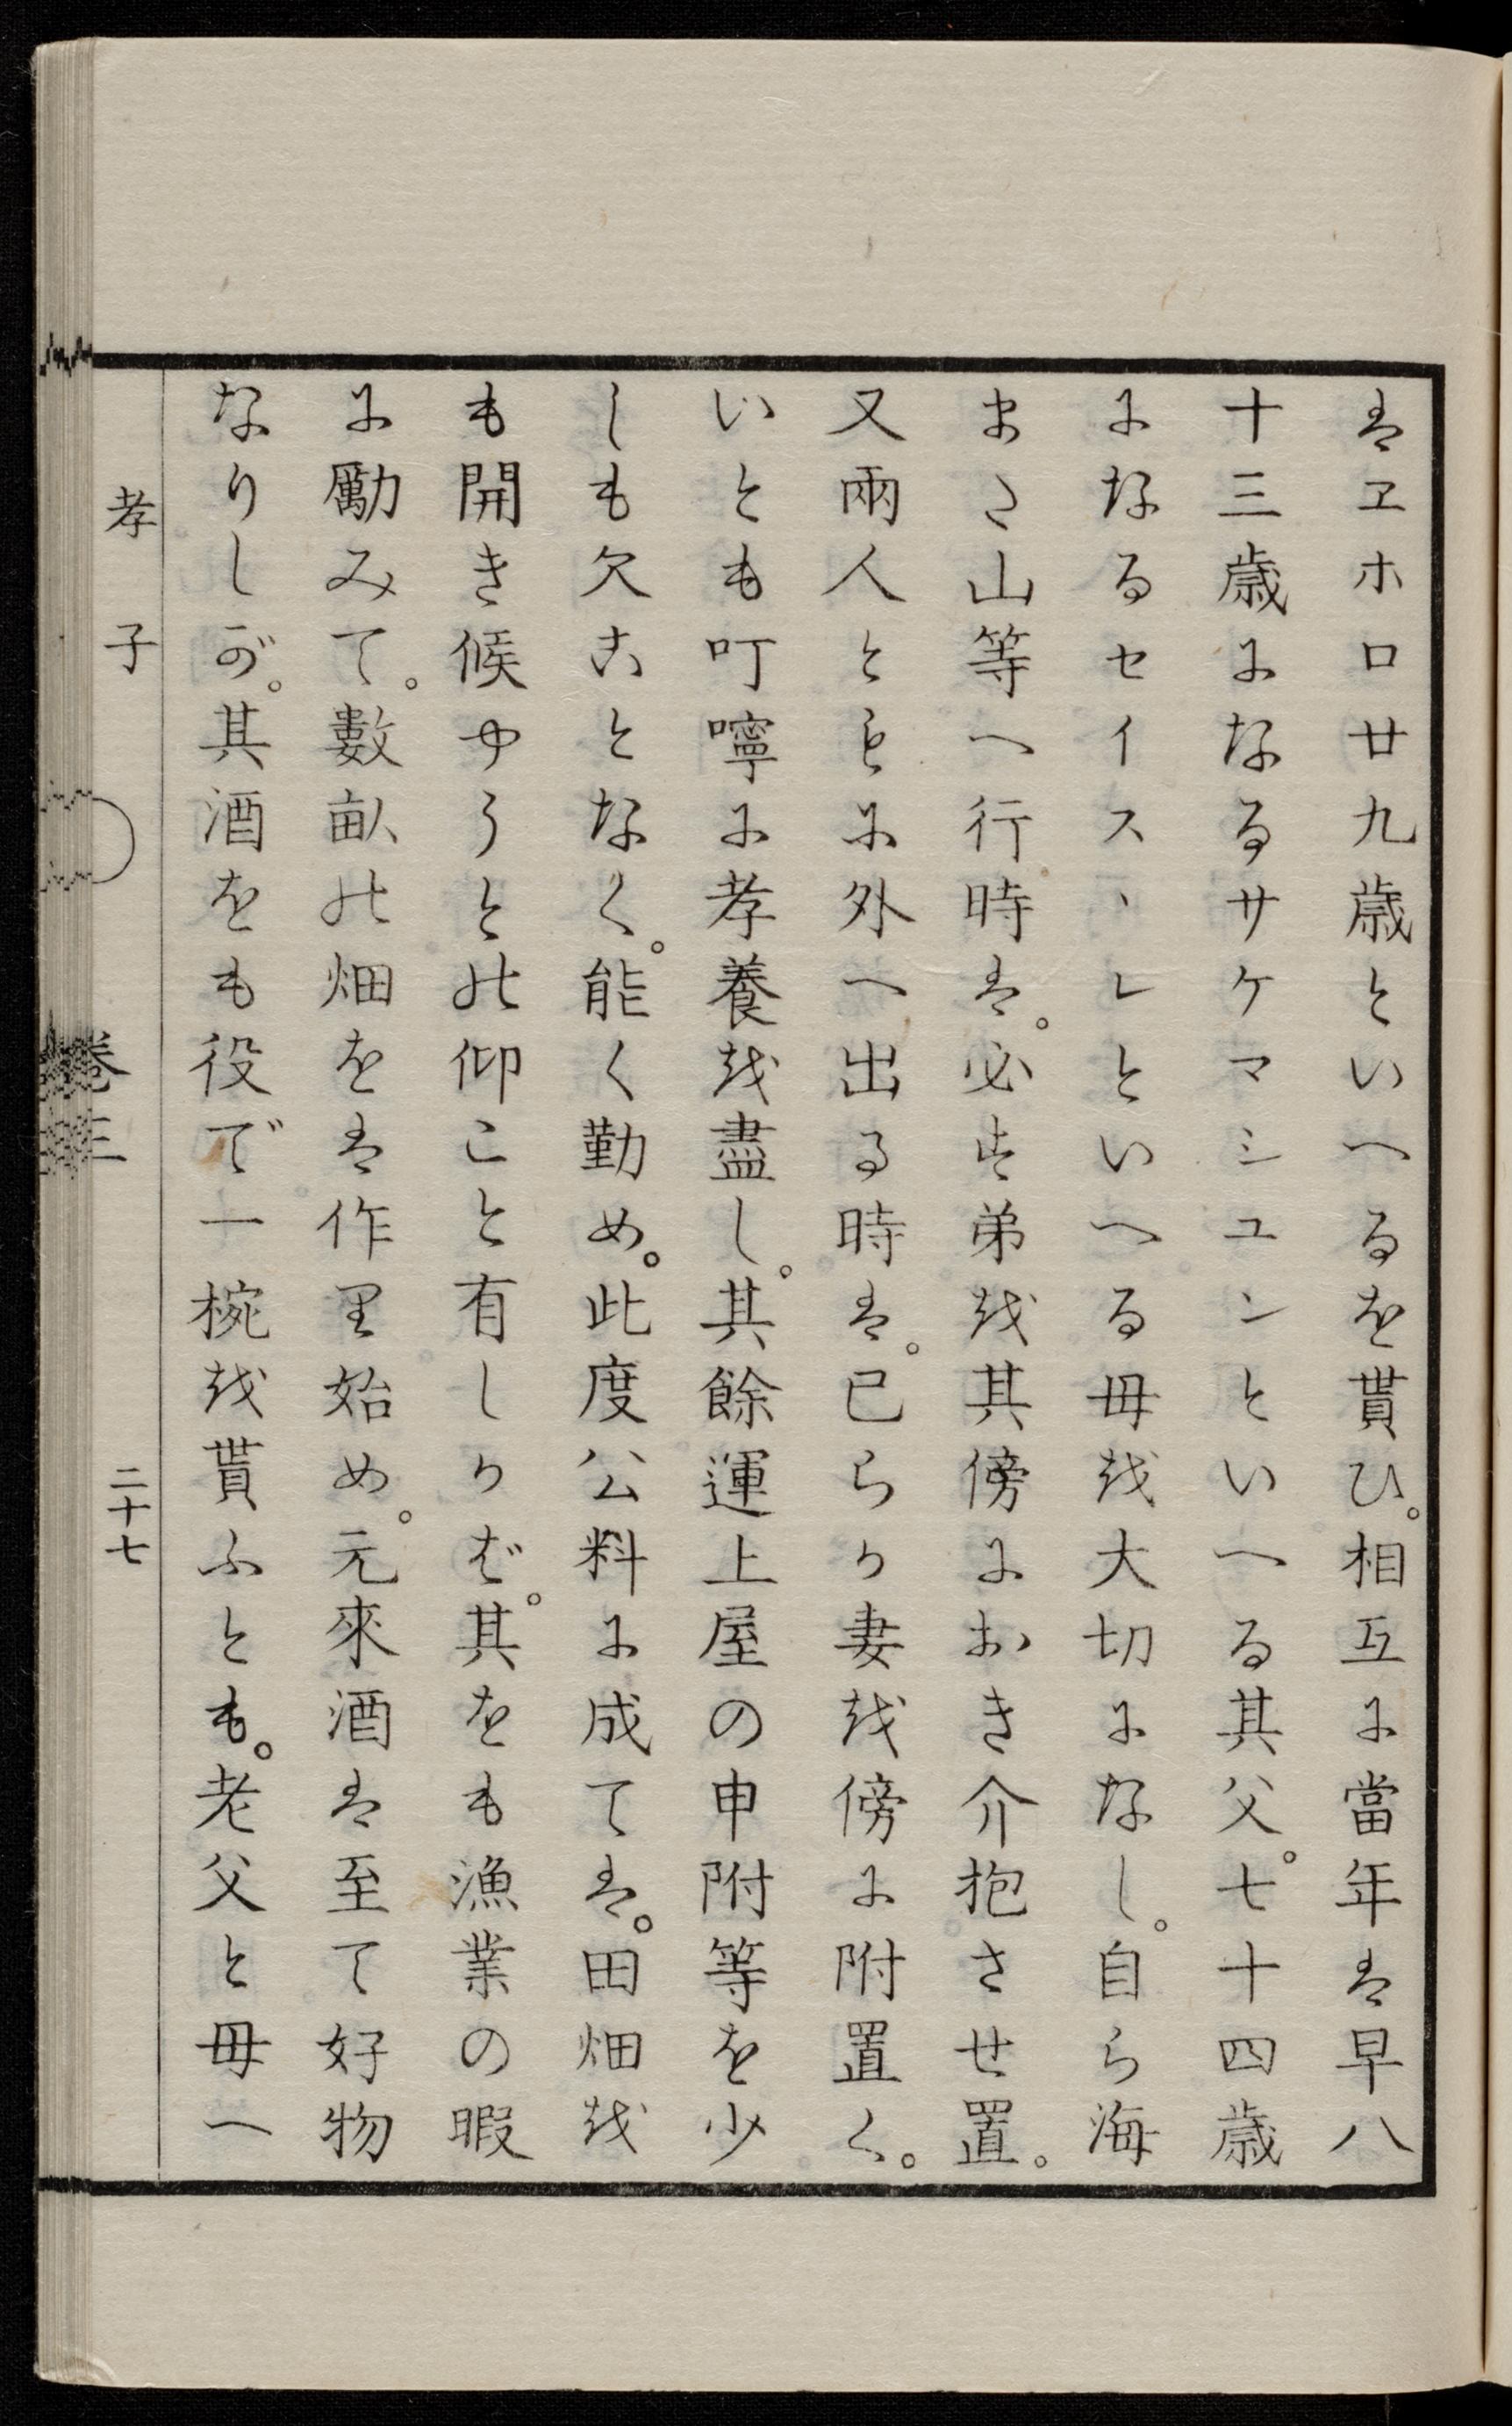 はヱホロ廿九歳といへるを貰ひ。相互に當年は早八
十三歳になるサケマシユンといへる其父。七十四歳
になるセイスヽレといへる母を大切になし。自ら海
また山等へ行時は。必ず弟を其傍におき介抱させ置。
又兩人ともに外へ出る時は。已らか妻を傍に附置く。
いとも叮嚀に孝養を盡し。其餘運上屋の申附等を少
しも欠ことなく。能く勤め。此度公料に成ては。田畑を
も開き候やうとの仰こと有しかば。其をも漁業の暇
に勵みて。數畝の畑をは作り始め。元來酒は至て好物
なりしが。其酒をも役で一椀を貰ふとも。老父と母へ
孝子　卷三　二十七